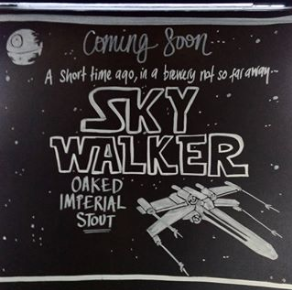 Coming Soon
A short time ago, in a brewery not so far away...
SKY
WALKER
OAKED
IMPERIAL
STOUT